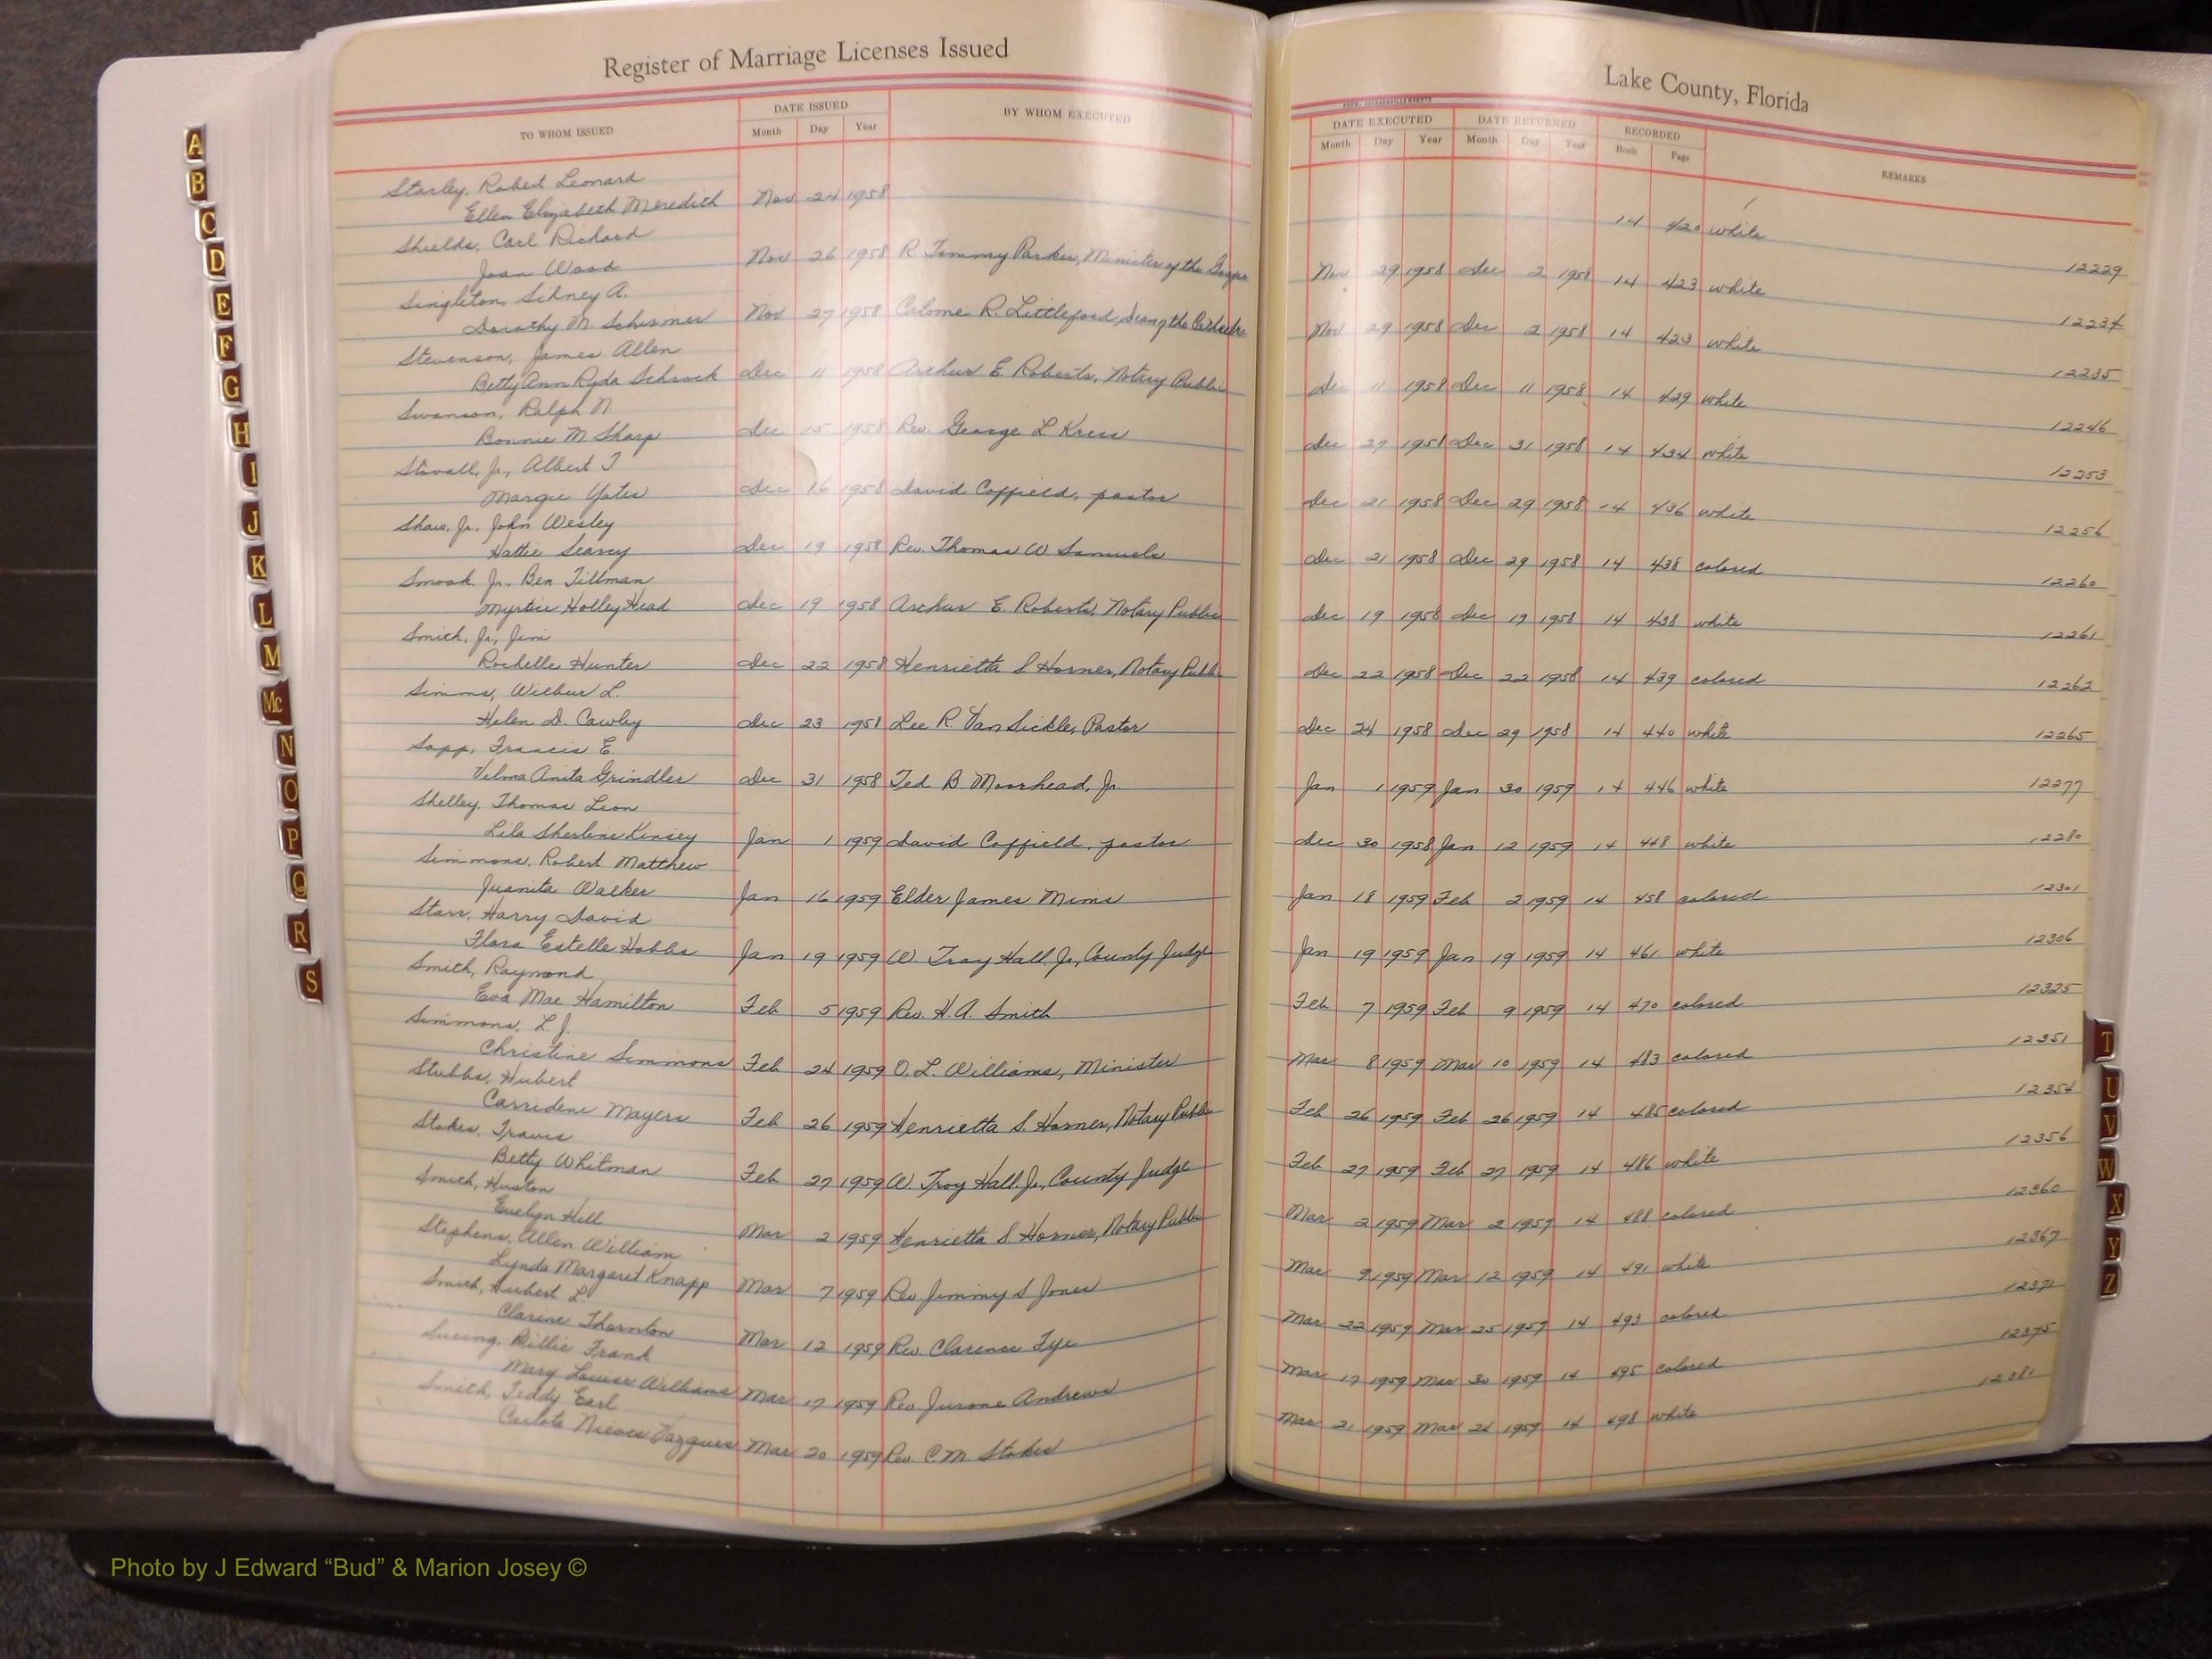 Register of Marriage Licenses Issued
Lake County, Florida
TO WHOM ISSUED
DATE ISSUED
Month Day Year
BY WHOM EXECUTED
DATE EXECUTED
Month Day Year
DATE RETURNED
Month Day Year
RECORDED
Book Page
REMARKS
Starley, Robert Leonard
Ellen Elizabeth Meredith Nov 24 1958 14 420 white
12229
Shields, Carl Richard
Joan Wood Nov 26 1958 R. Tommy Parker, Minister of the Nov 29 1958 Dec 2 1958 14 423 white
12234
Singleton, Sidney A.
Dorothy M. Nov 27 1958 R. Littleford, Nov 29 1958 Dec 2 1958 14 423 white
12235
Stevenson, James Allen
Betty Ann Ryda Schrock Dec 11 1958 Arthur E. Roberts, Notary Public Dec 11 1958 Dec 11 1958 14 429 white
12246
Swanson, Ralph N.
Bonnie M. Sharp Dec 15 1958 Rev. George L Kress Dec 27 1958 Dec 31 1958 14 434 white
12253
Stovall, Jr., Albert T
Margie Yates Dec 16 1958 David Coffield, pastor Dec 21 1958 Dec 29 1958 14 436 white
12256
Shaw, Jr. John Wesley
Hattie Searcy Dec 19 1958 Rev. Thomas W Samuels Dec 21 1958 Dec 29 1958 14 438 colored
12260
Smoak, Jr., Ben Tillman
Myrtice Holley Head Dec 19 1958 Arthur E. Roberts, Notary Public Dec 19 1958 Dec 19 1958 14 438 white
12261
Smith, Jr., Jim
Rochelle Hunter Dec 22 1958 Henrietta S. Horner, Notary Public Dec 22 1958 Dec 22 1958 14 439 colored
12262
Simms, Wilbur L.
Helen D. Cawley Dec 23 1958 Lee R. Van Sickle, Pastor Dec 24 1958 Dec 29 1958 14 440 white
12265
Sapp, Francis E.
Velma Anita Grindler Dec 31 1958 Ted B Moorhead, Jr. Jan 1 1959 Jan 30 1959 14 446 white
12277
Shelley, Thomas Leon
Lila Sherline Kinsey Jan 1 1959 David Coffield, pastor Dec 30 1958 Jan 12 1959 14 448 white
12280
Simmons, Robert Matthew
Juanita Walker Jan 16 1959 Elder James Mims Jan 18 1959 Feb 2 1959 14 458 colored
12301
Starr, Harry David
Flora Estelle Hobbs Jan 19 1959 W. Troy Hall, Jr., County Judge Jan 19 1959 Jan 19 1959 14 461 white
12306
Smith, Raymond
Eva Mae Hamilton Feb 5 1959 Rev. H.A. Smith Feb 7 1959 Feb 9 1959 14 470 colored
12325
Simmons, L. J.
Christine Simmons Feb 24 1959 O. L. Williams, Minister Mar 8 1959 Mar 10 1959 14 483 colored
12351
Stubbs, Hubert
Carridene Mayers Feb 26 1959 Henrietta S. Horner, Notary Public Feb 26 1959 Feb 26 1959 14 485 colored
12354
Stokes, Travis
Betty Whitman Feb 27 1959 W. Troy Hall, Jr., County Judge Feb 27 1959 Feb 27 1959 14 486 white
12356
Smith, Huston
Evelyn Hill Mar 2 1959 Henrietta S Horner, Notary Public Mar 2 1959 Mar 2 1959 14 488 colored
12360
Stephens, Allen William
Lynda Margaret Knapp Mar 7 1959 Rev. Jimmy S Jones Mar 9 1959 Mar 12 1959 14 491 white
12367
Smith, Hubert L.
Clarine Thornton Mar 12 1959 Rev. Clarence Mar 22 1959 Mar 25 1959 14 493 colored
12371
Billie Frank
Mary Louise Williams Mar 17 1959 Rev Andrews Mar 17 1959 Mar 30 1959 14 495 colored
12375
Smith, Teddy Earl
Carlota Nieves Mar 20 1959 Rev. C.M. Stokes Mar 21 1959 Mar 26 1959 14 498 white
12381
A
B
C
D
E
F
G
H
I
J
K
L
M
Mc
N
O
P
Q
R
S
T
U
V
W
X
Y
Z
Photo by J Edward “Bud” & Marion Josey ©